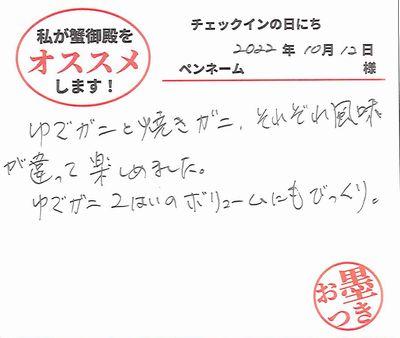 私が蟹御殿を
オススメ
します!
チェックインの日にち
2022年10月12日
ペンネーム 様
ゆでガニと焼きガニ、それぞれ風味
が違って楽しめました。
ゆでガニ2はいのボリュームにもびっくり。
お墨つき